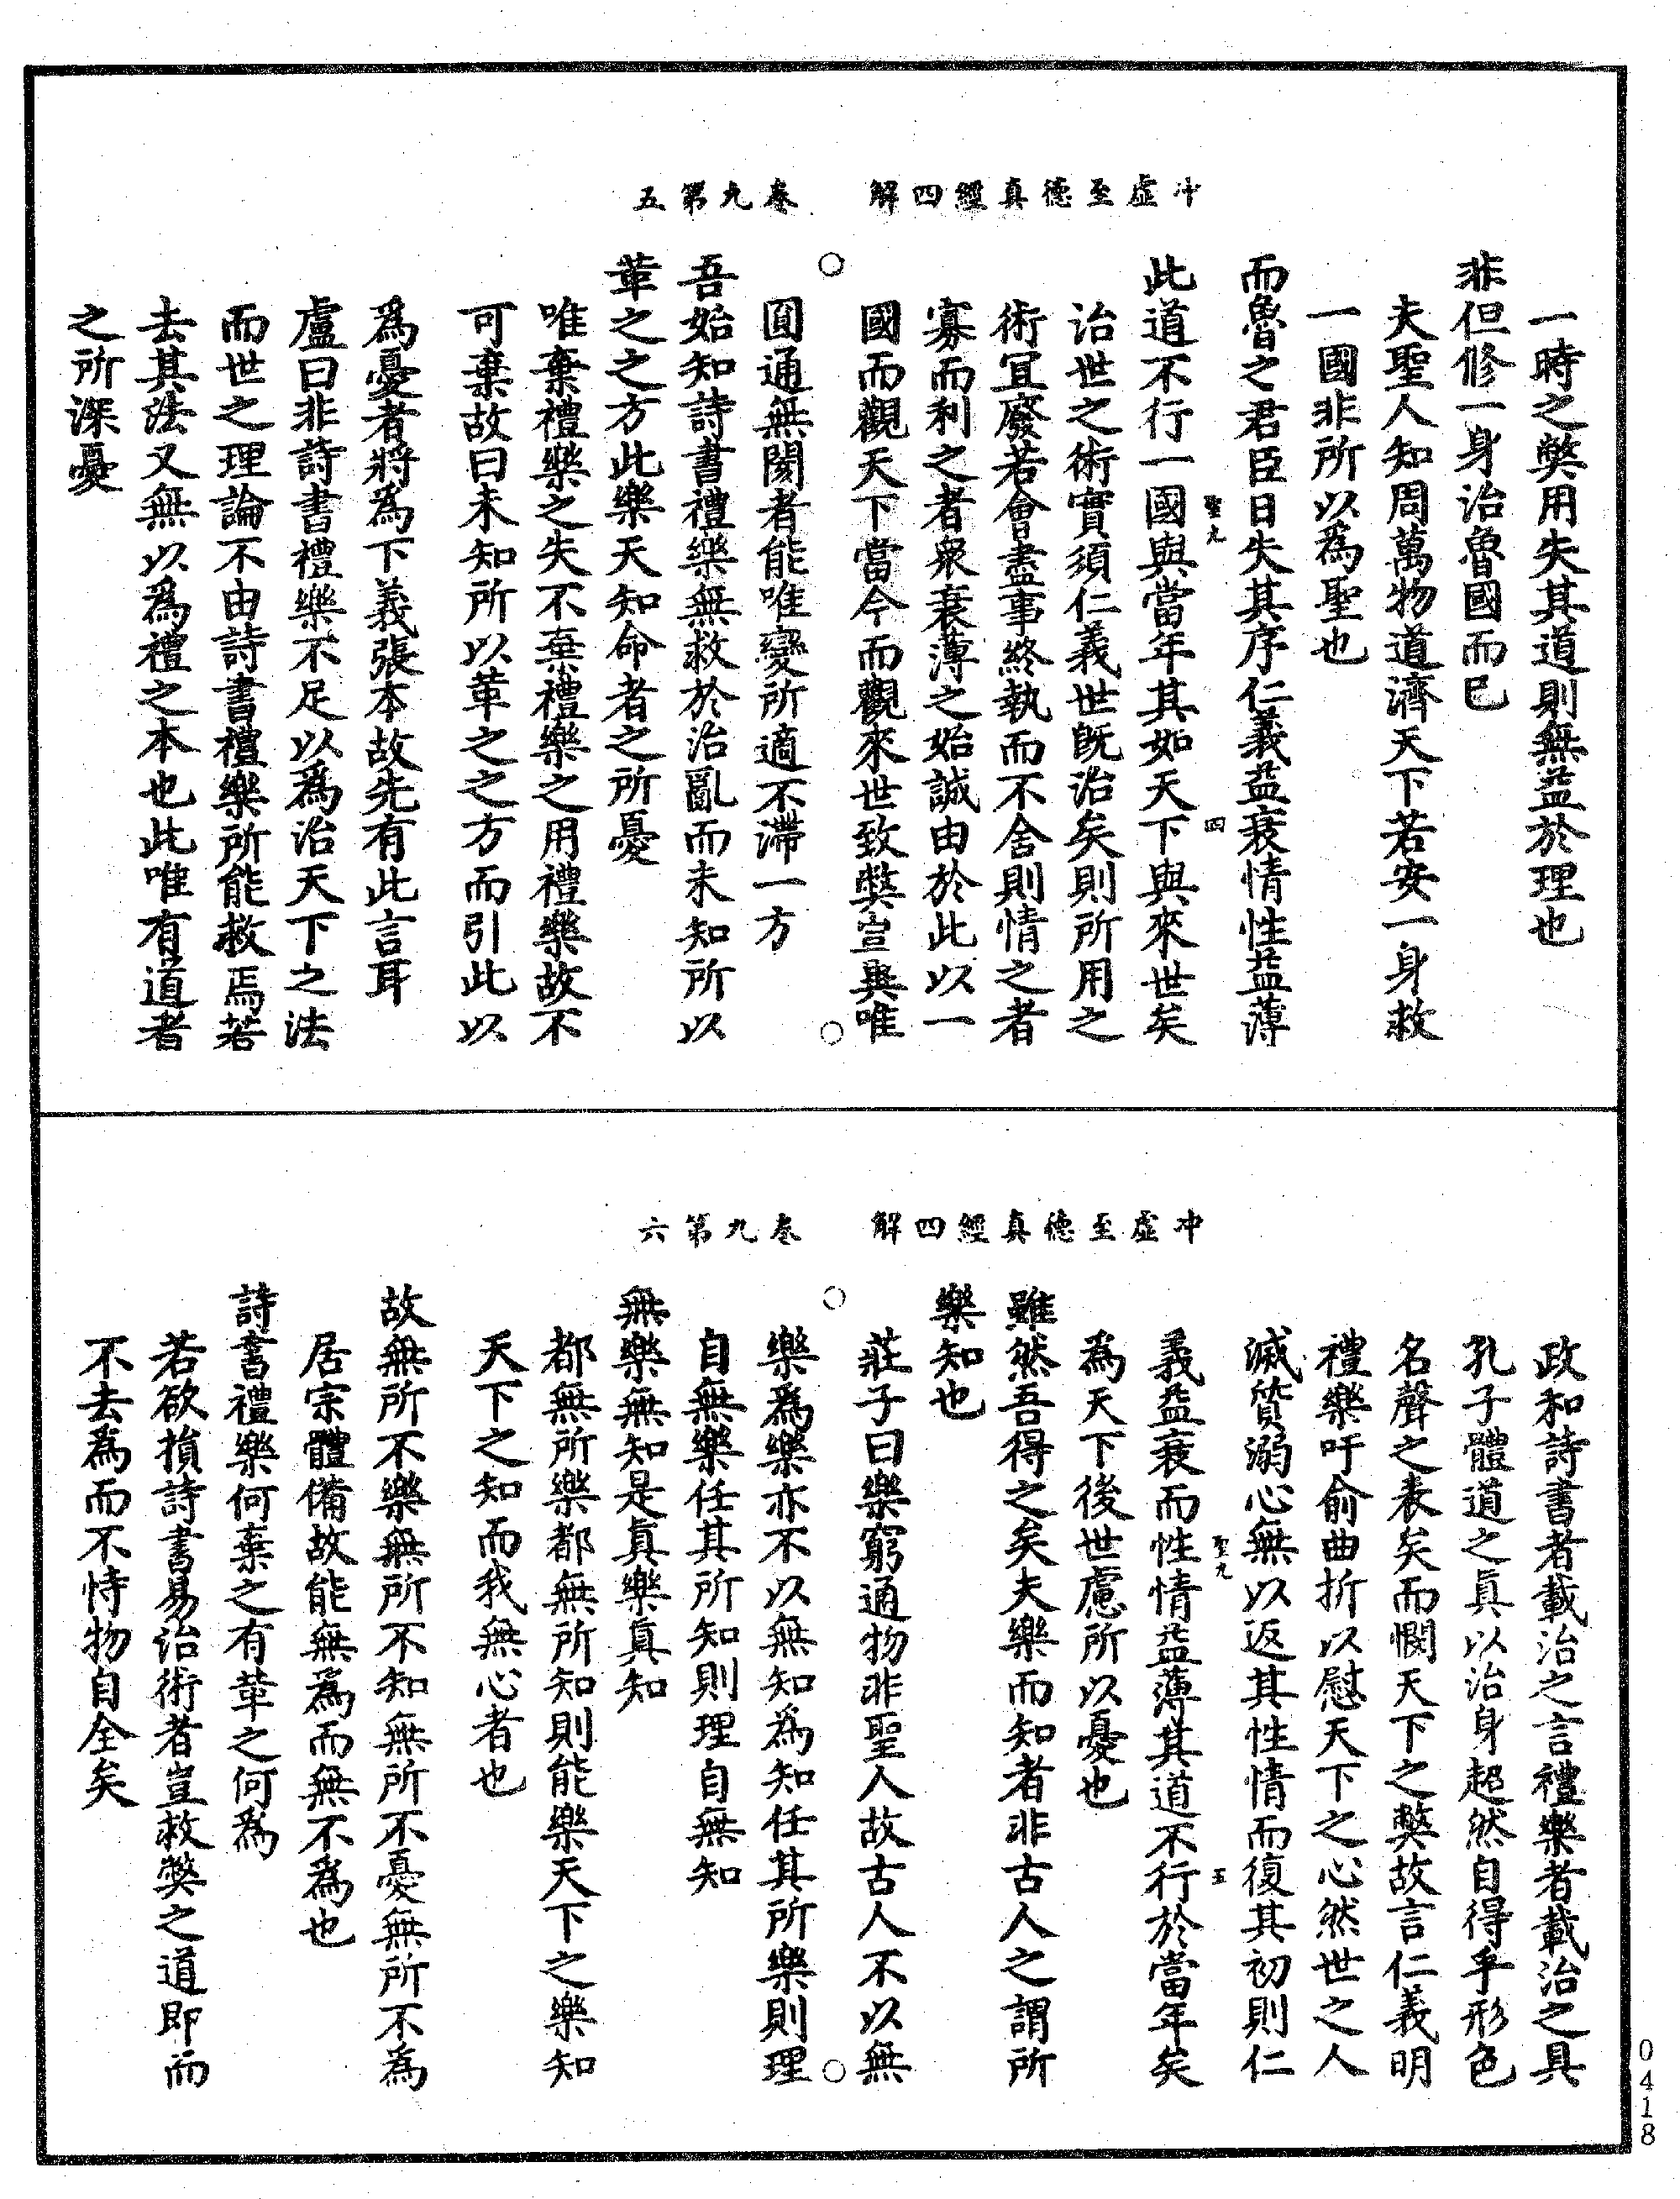 冲虛至德真經四解　卷九第五
一時之弊用失其道則無益於理也
非但修一身治魯國而已
夫聖人知周萬物道濟天下若安一身救
一國非所以為聖也
而魯之君臣日失其序仁義益衰情性益薄
聖九　四
此道不行一國與當年其如天下與來世矣
治世之術實須仁義世既治矣則所用之
術冝廢若會盡事終執而不舍則情之者
寡而利之者衆衰薄之始誠由於此以一
國而觀天下當今而觀來世致弊豈異唯
圓通無閡者能唯變所適不滯一方
吾始知詩書禮樂無救於治亂而未知所以
革之之方此樂天知命者之所憂
唯棄禮樂之失不棄禮樂之用禮樂故不
可棄故曰未知所以革之之方而引此以
爲憂者將為下義張本故先有此言耳
盧曰非詩書禮樂不足以爲治天下之法
而世之理論不由詩書禮樂所能救焉若
去其法又無以爲禮之本也此唯有道者
之所深憂
冲虛至德真經四解　卷九第六
政和詩書者載治之言禮樂者載治之具
孔子體道之真以治身超然自得乎形色
名聲之表矣而憫天下之弊故言仁義明
禮樂吁俞曲折以慰天下之心然世之人
滅質溺心無以返其性情而復其初則仁
聖九　五
義益衰而性情益薄其道不行於當年矣
為天下後世慮所以憂也
雖然吾得之矣夫樂而知者非古人之謂所
樂知也
莊子曰樂窮通物非聖人故古人不以無
樂爲樂亦不以無知為知任其所樂則理
自無樂任其所知則理自無知
無樂無知是真樂真知
都無所樂都無所知則能樂天下之樂知
天下之知而我無心者也
故無所不樂無所不知無所不憂無所不為
居宗體備故能無爲而無不爲也
詩書禮樂何棄之有革之何爲
若欲損詩書易治術者豈救弊之道即而
不去為而不恃物自全矣
0418